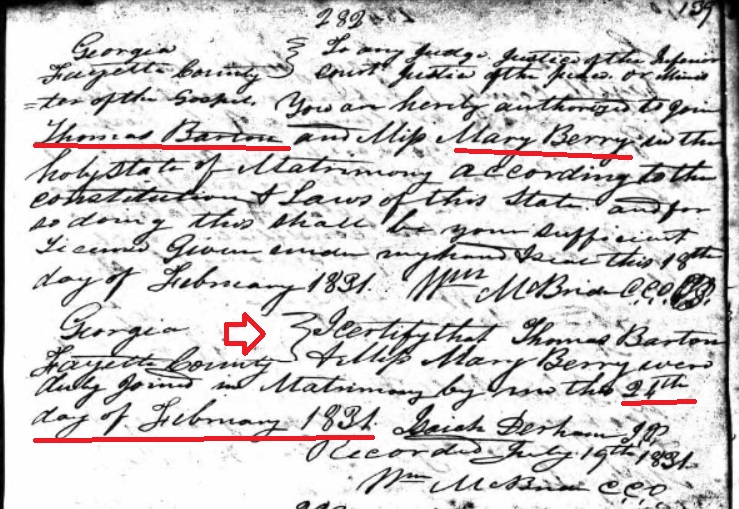 282
159
Georgia
Fayette County } To any Judge. Justice of the Inferior
court Justice of the peace. or Minis
=ter of the Gospel. You are herely authorised to join
Thomas Barton and Miss Mary Berry in the
holy State of Matrimony according to the
constitution & Laws of this State and for
so doing this shall be your sufficient
Licence Given under my hand & seal this 18th
day of February 1831. Wm McBride C.C.O
Georgia
Fayette County } I certify that Thomas Barton
& Miss Mary Berry were
duly joined in Matrimony by me this 24th
day of February 1831. Derham J.P.
Recorded July 19th 1831.
Wm McBride C.C.O